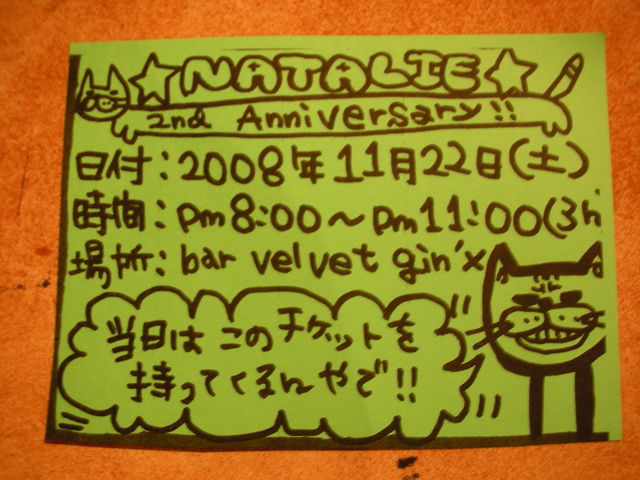 ☆NATALIE☆
2nd Anniversary!!
日付:2008年11月22日(土)
時間:pm8:00〜pm11:00(3h
場所:bar velvet gin'x
当日はこのチケットを
持ってくるんやで!!